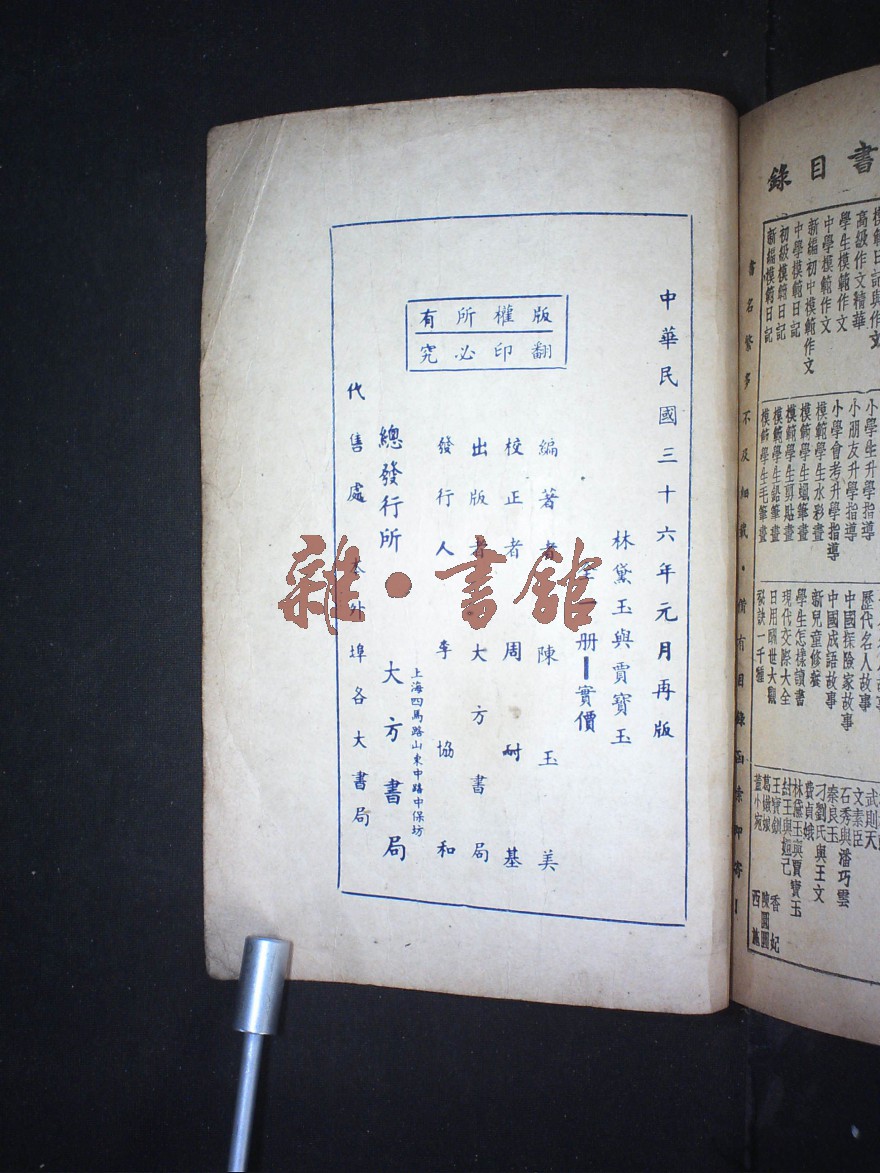 中華民國三十六年元月再版
林黛玉與賈寶玉
全一册━實價
版權所有
翻印必究
編著者 陳玉美
校正者 周耐基
出版者 大方書局
發行人 李協和
總發行所 大方書局
上海四馬路山東中路中保坊
代售處 本外埠各大書局
雜·書館
書目錄
模範日記與作文
高級作文精華
學生模範作文
中學模範作文
新編初中模範作文
中學模範日記
初級模範日記
新編模範日記
小學生升學指導
小朋友升學指導
小學會考升學指導
模範學生水彩畫
模範學生蠟筆畫
模範學生剪貼畫
模範學生鉛筆畫
模範學生毛筆畫
歷代名人故事
中國探險家故事
中國成語故事
新兒童修養
學生怎樣讀書
現代交際大全
日用酬世大觀
發訣一千種
武則天
文素臣
石秀與潘巧雲
秦良玉
刁劉氏與王文
費貞娥
林黛玉與賈寶玉
紂王與妲己 香妃
王寶釧 陳圓圓
葛嫩娘
董小宛 西施
書名繁多不及細載·備有目錄函索即寄!